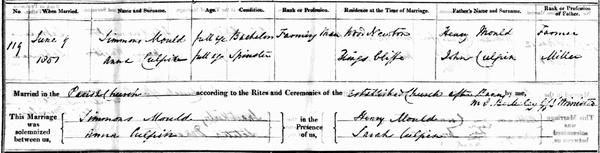 When Married. Name and Surname. Age. Condition. Rank or Profession. Residence at the Time of Marriage. Father's Name and Surname. Rank or Profession of Father.
119 June 9 Simmons Mould full age Bachelor Farming Man Wood Newton Henry Mould Farmer
1851 Anna Culpin full age Spinster Kings Cliffe John Culpin Miller
Married in the Parish Church according to the Rites and Ceremonies of the Established Church after Banns by me,
This Marriage was solemnized between us, Simmons Mould Anna Culpin in the Presence of us, Henry Mould Sarah Culpin